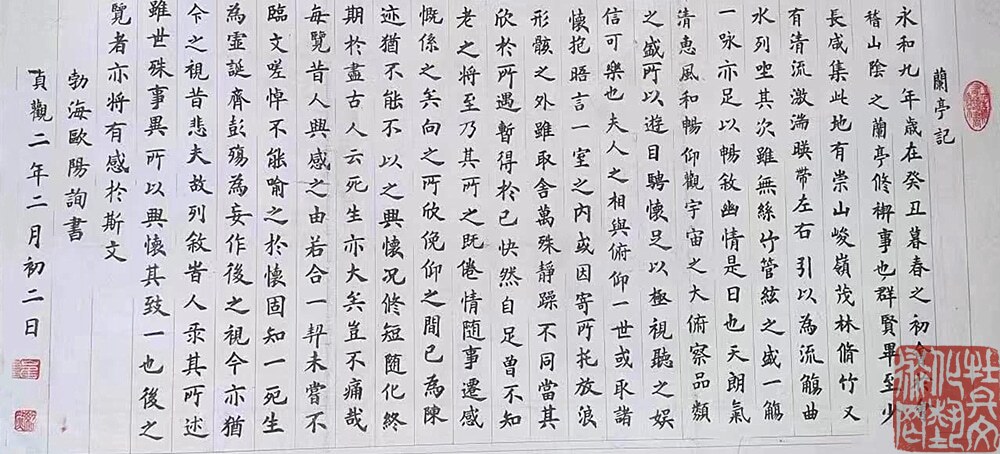 蘭亭記
永和九年歲在癸丑暮春之初
稽山陰之蘭亭修禊事也群賢畢至少
長咸集此地有崇山峻嶺茂林脩竹又
有清流激湍暎帶左右引以為流觴曲
水列坐其次雖無絲竹管絃之盛一觴
一咏亦足以暢敘幽情是日也天朗氣
清惠風和暢仰觀宇宙之大俯察品類
之盛所以遊目騁懷足以極視聽之娛
信可樂也夫人之相與俯仰一世或取諸
懷抱晤言一室之內或因寄所托放浪
形骸之外雖取舍萬殊靜躁不同當其
欣於所遇暫得於己快然自足曾不知
老之将至乃其所之既倦情随事遷感
慨係之矣向之所欣俛仰之間已為陳
迹猶不能不以之興懷况修短随化終
期於盡古人云死生亦大矣豈不痛哉
每覽昔人興感之由若合一契未嘗不
臨文嗟悼不能喻之於懷固知一死生
為虛誕齊彭殤為妄作後之視今亦猶
今之視昔悲夫故列敘昔人录其所述
雖世殊事異所以興懷其致一也後之
覽者亦将有感於斯文
勃海歐陽詢書
貞觀二年二月初二日